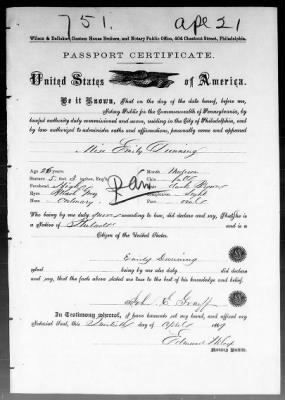 751. ape 21
Wilson & Dallaker, Custom House Brokers, and Notary Public Office, 404 Chestnut Street, Philadelphia.
PASSPORT CERTIFICATE.
United States of America.
Be it Known, That on the day of the date hereof, before me,
Notary Public for the Commonwealth of Pennsylvania, by
lawful authority duly commissioned and sworn, residing in the City of Philadelphia, and
by law authorized to administer oaths and affirmations, personally came and appeared
Miss Emily Dunning
Age 26 years. Mouth
Stature 5 feet 3 inches, Eng. Chin
Forehead High Hair Dark Brown
Eyes Complexion light
Nose ordinary Face oval
Paid
Who being by me duly sworn according to law, did declare and say, That she is
a Native of Philad
Citizen of the United States.
Emily Dunning
And being by me also duly did declare
and say, that the facts above stated are true to the best of his knowledge and belief.
In Testimony whereof, I have hereunto set my hand, and affixed my
Notarial Seal, this day of April
Notary Public.